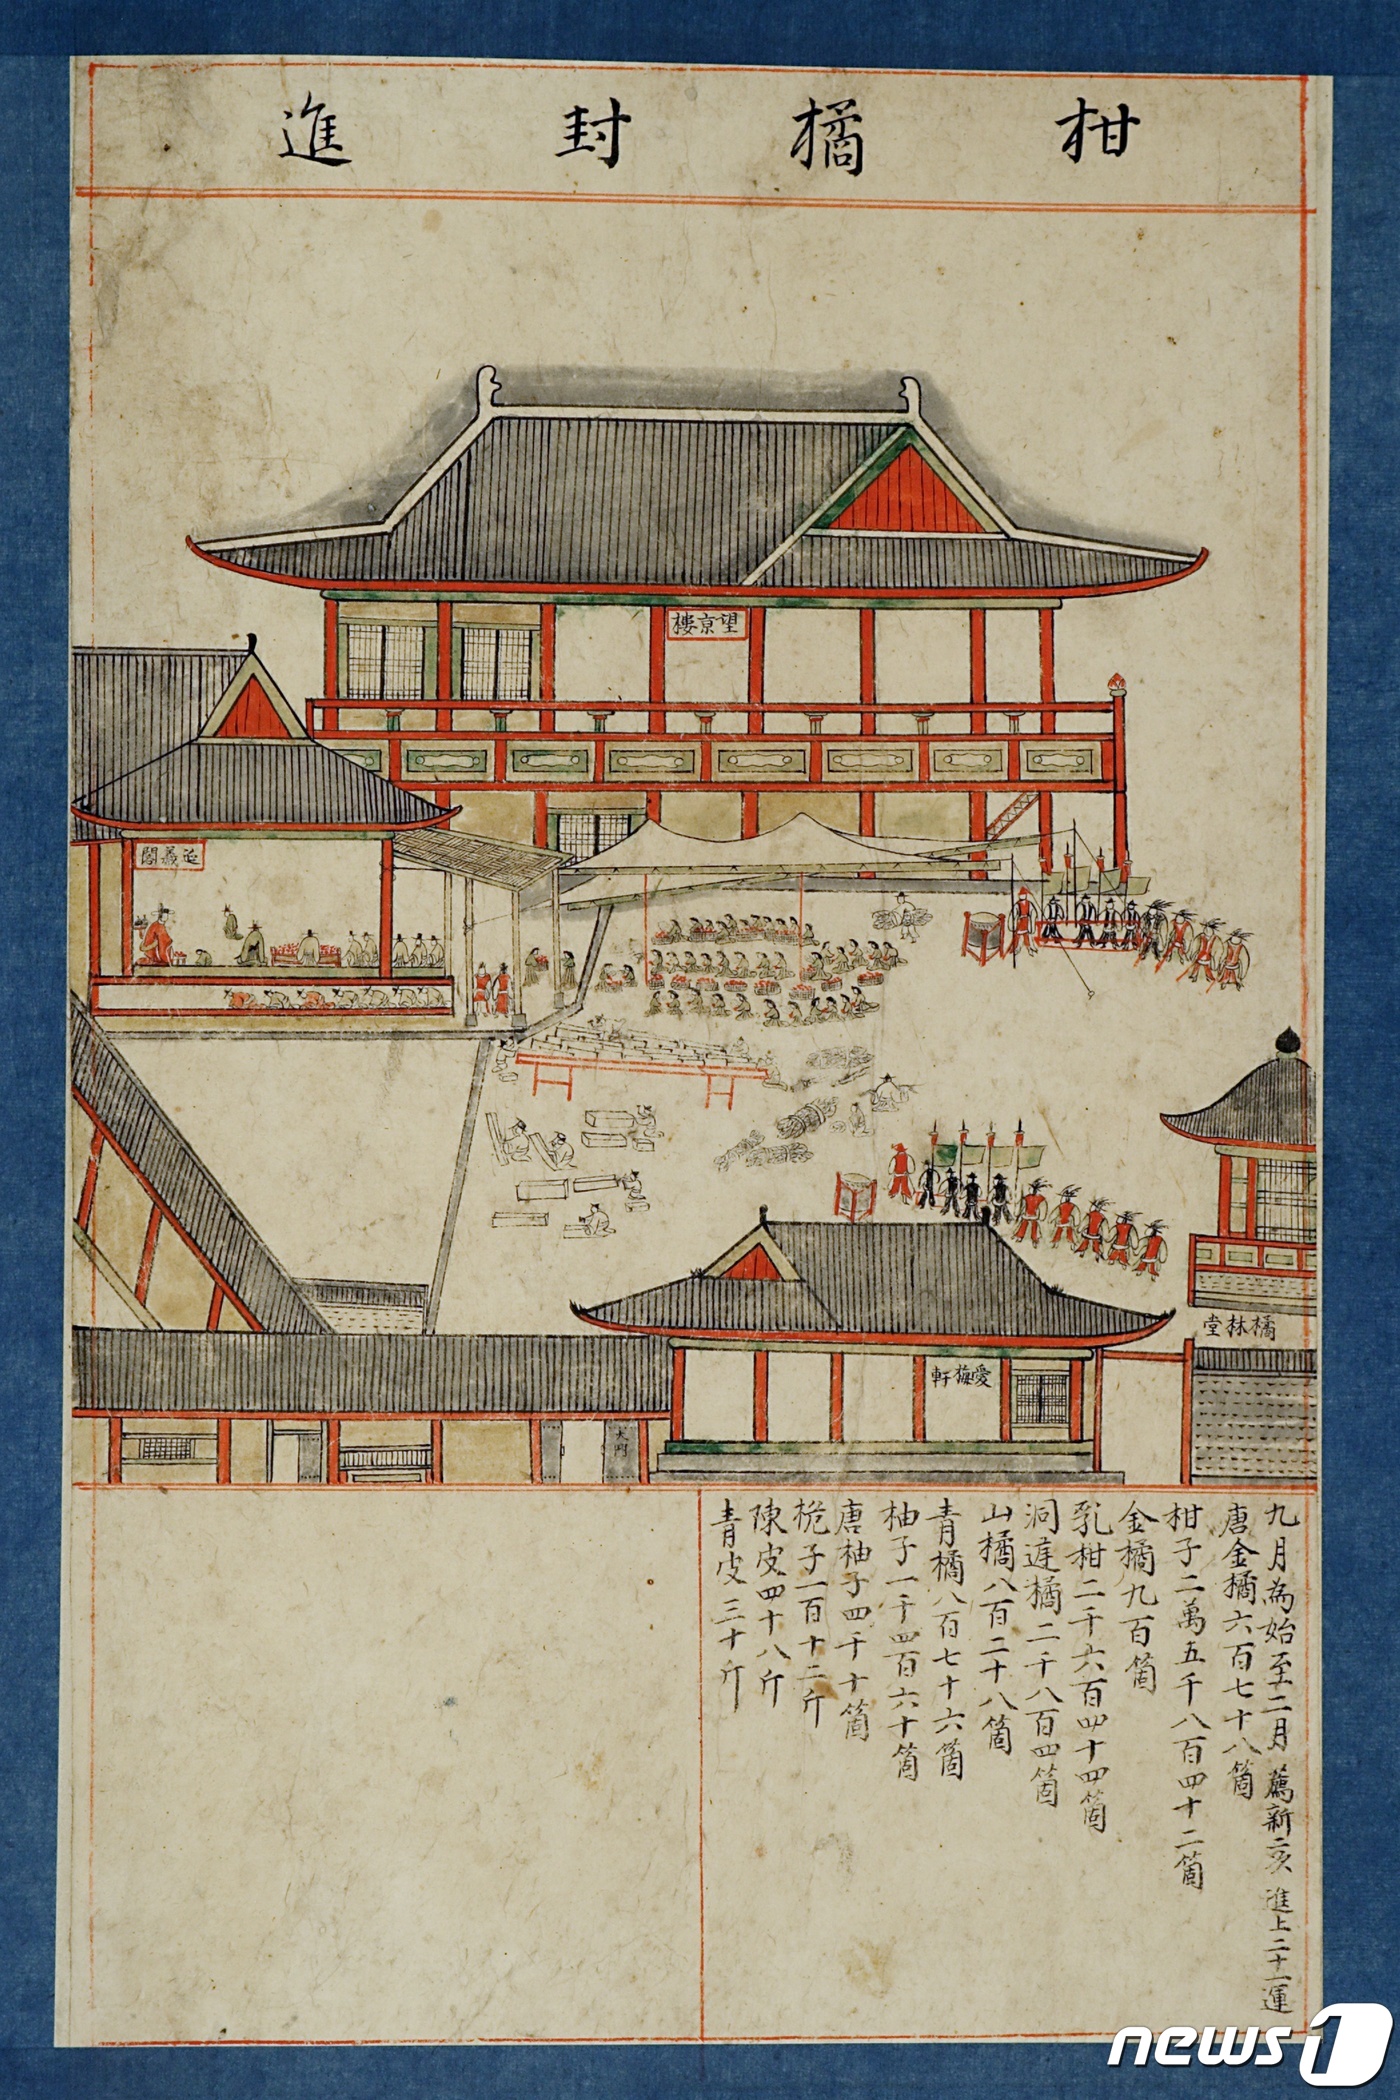 柑橘封進
望京樓
延義閣
橘林堂
愛梅軒
大門
九月為始至二月 薦新二次 進上二十一運
唐金橘六百七十八箇
柑子二萬五千八百四十二箇
金橘九百箇
乳柑二千六百四十四箇
洞庭橘二千八百四箇
山橘八百二十八箇
青橘八百七十六箇
柚子一千四百六十箇
唐柚子四千十箇
梔子一百十二斤
陳皮四十八斤
青皮三十斤
news1